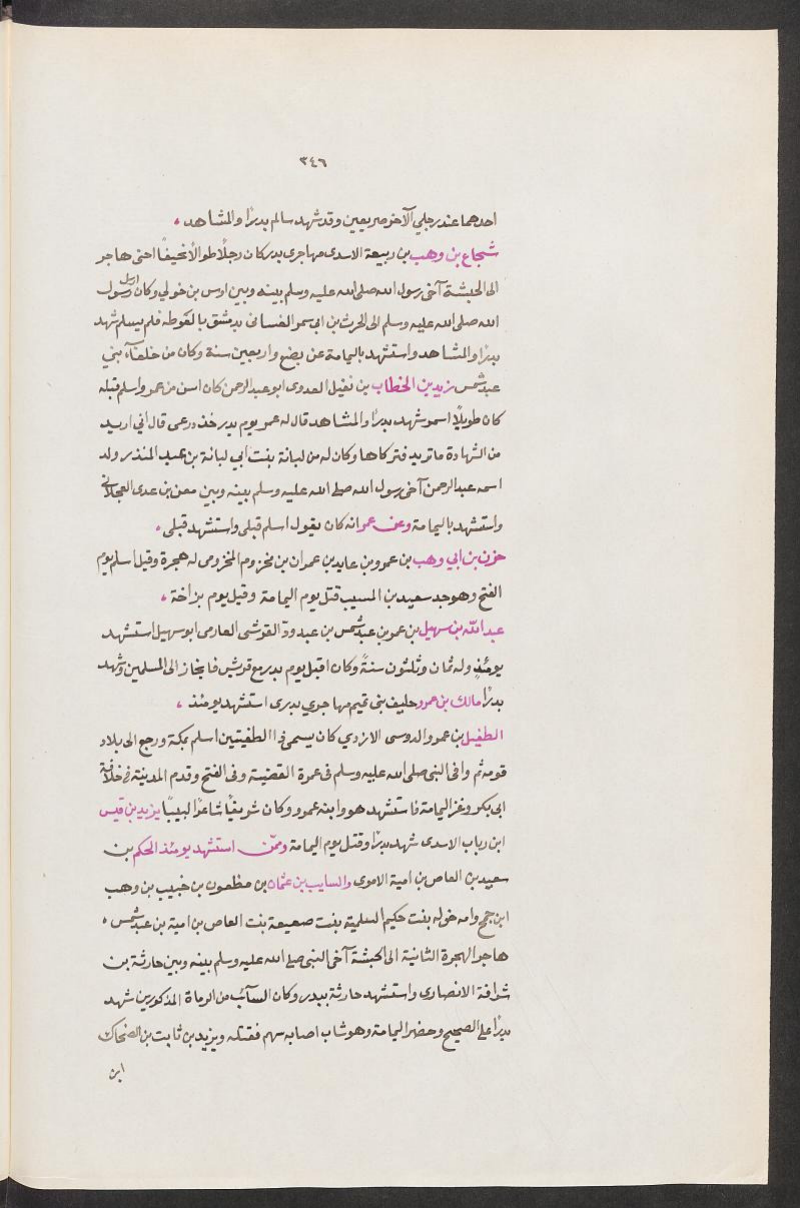 ٣٤٦
احدهما عند رجلي الآخر صريعين وقد شهد سالم بدرًا والمشاهد .
شجاع بن وهب بن ربيعة الاسدى مهاجرى بدر كان رجلًا طوالًا نحيفًا احنى هاجر
الى الحبشة آخى رسول الله صلى الله عليه وسلم بينه وبين اوس بن خولي وكان ارسل رسول
الله صلى الله عليه وسلم الى الحرث بن ابى سمر الغسانى بدمشق بالغوطه فلم يسلم شهد
بدرًا والمشاهد واستشهد باليمامة عن بضع واربعين سنة وكان من حلفآء بني
عبد شمس زيد بن الخطاب بن نفيل العدوى ابو عبد الرحمن كان اسن من عمر واسلم قبله
كان طويلًا اسمر شهد بدرًا والمشاهد قال له عمر يوم بدر خذ درعى قال انى اريد
من الشهادة ما تريد فتركاها وكان له من لبانة بنت ابي لبانة بن عبد المنذر ولد
اسمه عبد الرحمن آخى رسول الله صلى الله عليه وسلم بينه وبين معن بن عدى العجلانى
واستشهد باليمامة وعن عمر انه كان يقول اسلم قبلى واستشهد قبلى .
حزن بن ابي وهب بن عمرو بن عايد بن عمران بن مخزوم المخزومى له هجرة وقيل اسلم يوم
الفتح وهو جد سعيد بن المسيب قتل يوم اليمامة وقيل يوم بزاخة .
عبد الله بن سهيل بن عمر بن عبد شمس بن عبد ودّ القرشى العامرى ابو سهيل استشهد
يومئذ وله ثمان وثلثون سنةً وكان اقبل يوم بدر مع قريش فانحاز الى المسلمين وشهد
بدرًا مالك بن عمرو حليف بنى تميم مهاجري بدرى استشهد يومئذ .
الطفيل بن عمرو الدوسى الازدي كان يسمى ذا الطفيتين اسلم بمكة ورجع الى بلاد
قومه ثم وافى النبى صلى الله عليه وسلم فى عمرة القضية وفى الفتح وقدم المدينة فى خلافة
ابى بكر وغزا اليمامة فاستشهد هو وابنه عمرو وكان شريفًا شاعرًا لبيبًا يزيد بن قيس
ابن رباب الاسدى شهد بدرًا وقتل يوم اليمامة وممّن استشهد يومئذ الحكم بن
سعيد بن العاص بن امية الاموى والسايب بن عثمان بن مظعون بن خبيب بن وهب
ابن جمح وامه خوله بنت حكيم السلمية بنت صعيعة بنت العاص بن امية بن عبد شمس .
هاجر الهجرة الثانية الى الحبشة آخى النبى صلى الله عليه وسلم بينه وبين حارثة بن
شراقة الانصارى واستشهد حارثة ببدر وكان السآئب من الرماة المذكورين شهد
بدرًا على الصحيح وحضر اليمامة وهو شاب اصابه سهم فقتله ويزيد بن ثابت بن الضحاك
ابن